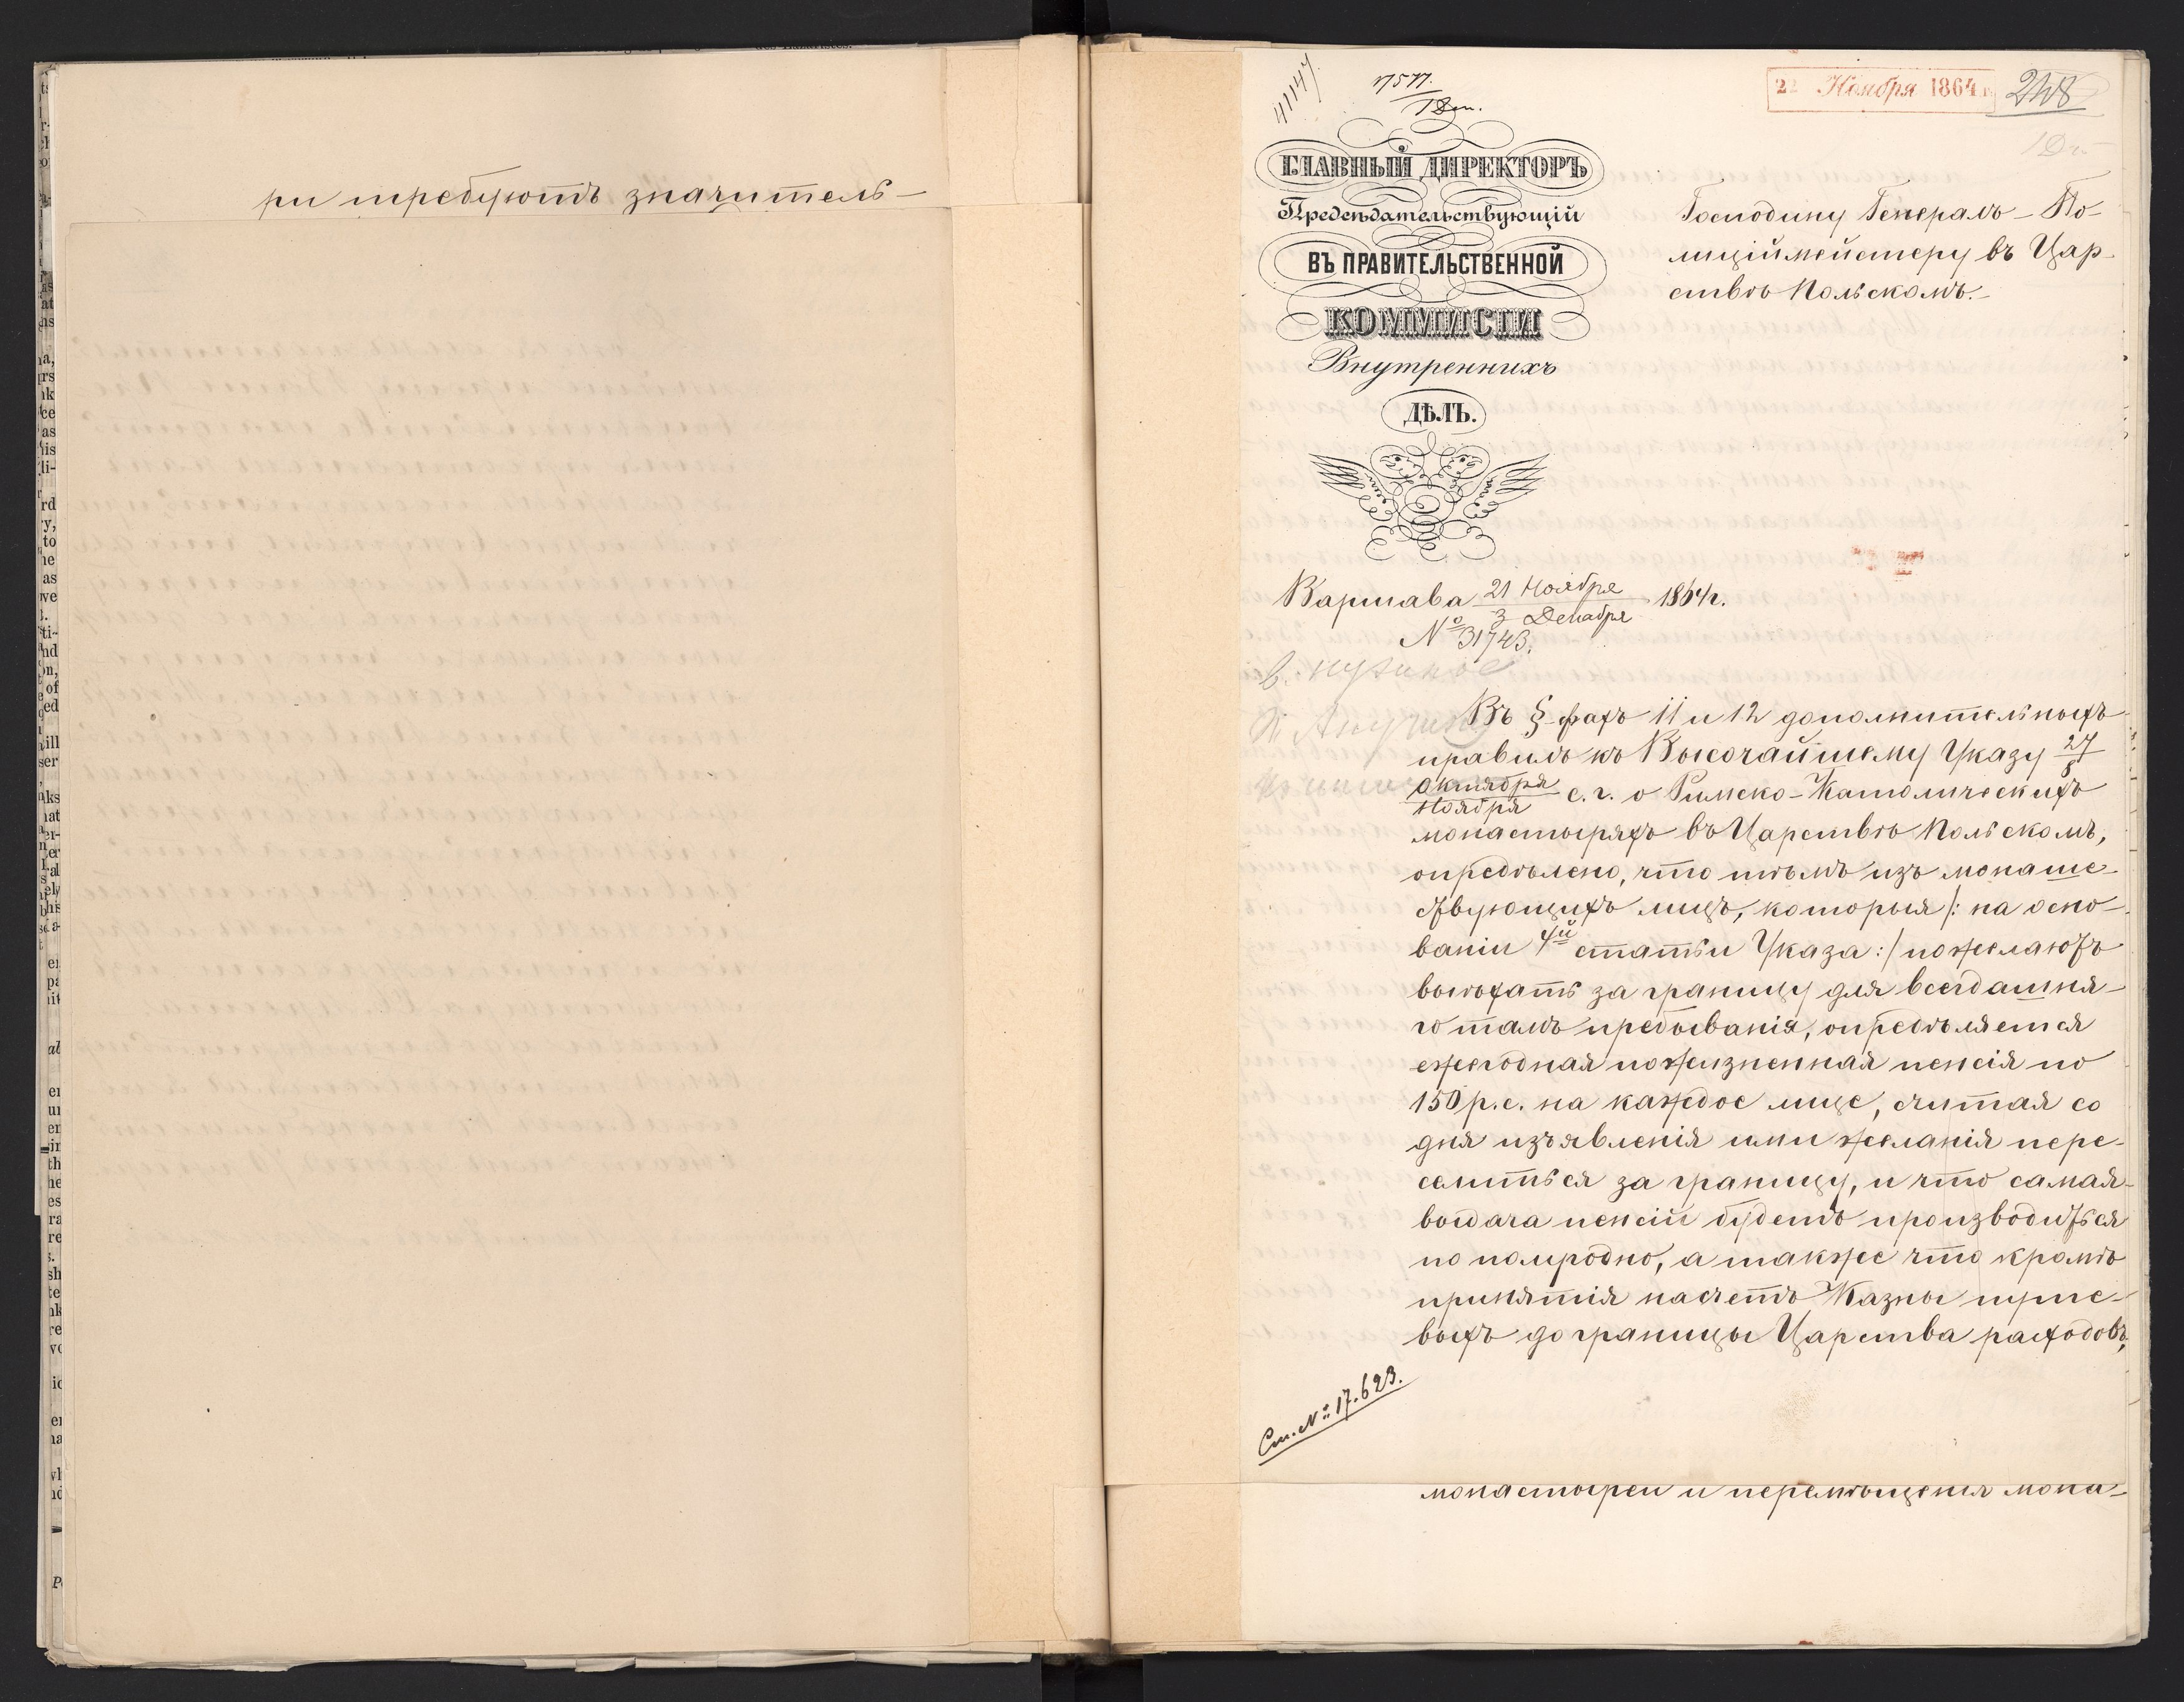 ри требуютъ значитель-
22 Ноября 1864 г.
248
41147
7577.
1 Дт.
ГЛАВНЫЙ ДИРЕКТОРЪ
Предсѣдательствующій
ВЪ ПРАВИТЕЛЬСТВЕННОЙ
КОММИСІИ
Внутреннихъ
ДѢЛЪ.
Господину Генералъ-По-
лиціймейстеру въ Цар-
ствѣ Польскомъ.-
Варшава 21 Ноября / 3 Декабря 1864 г.
№ 31743.
Въ §-фахъ 11 и 12 дополнительныхъ
правилъ къ Высочайшему Указу 27
Октября / 8 Ноября с. г. о Римско-Католическихъ
монастыряхъ въ Царствѣ Польскомъ,
опредѣлено, что тѣмъ изъ монаше-
ствующихъ лицъ, которыя /: на осно-
ваніи 4й статьи Указа :/ пожелаютъ
выѣхать за границу для всегдашня-
го тамъ пребыванія, опредѣляется
ежегодная пожизненная пенсія по
150 р. с. на каждое лице, считая со
дня изъявленія ими желанія пере-
селиться за границу, и что самая
выдача пенсіи будетъ производиться
по полугодно, а также что кромѣ
принятія насчетъ Казны путе-
выхъ до границы Царства расходовъ,
См. № 17.623.
монастырей и перемѣщенія мона-